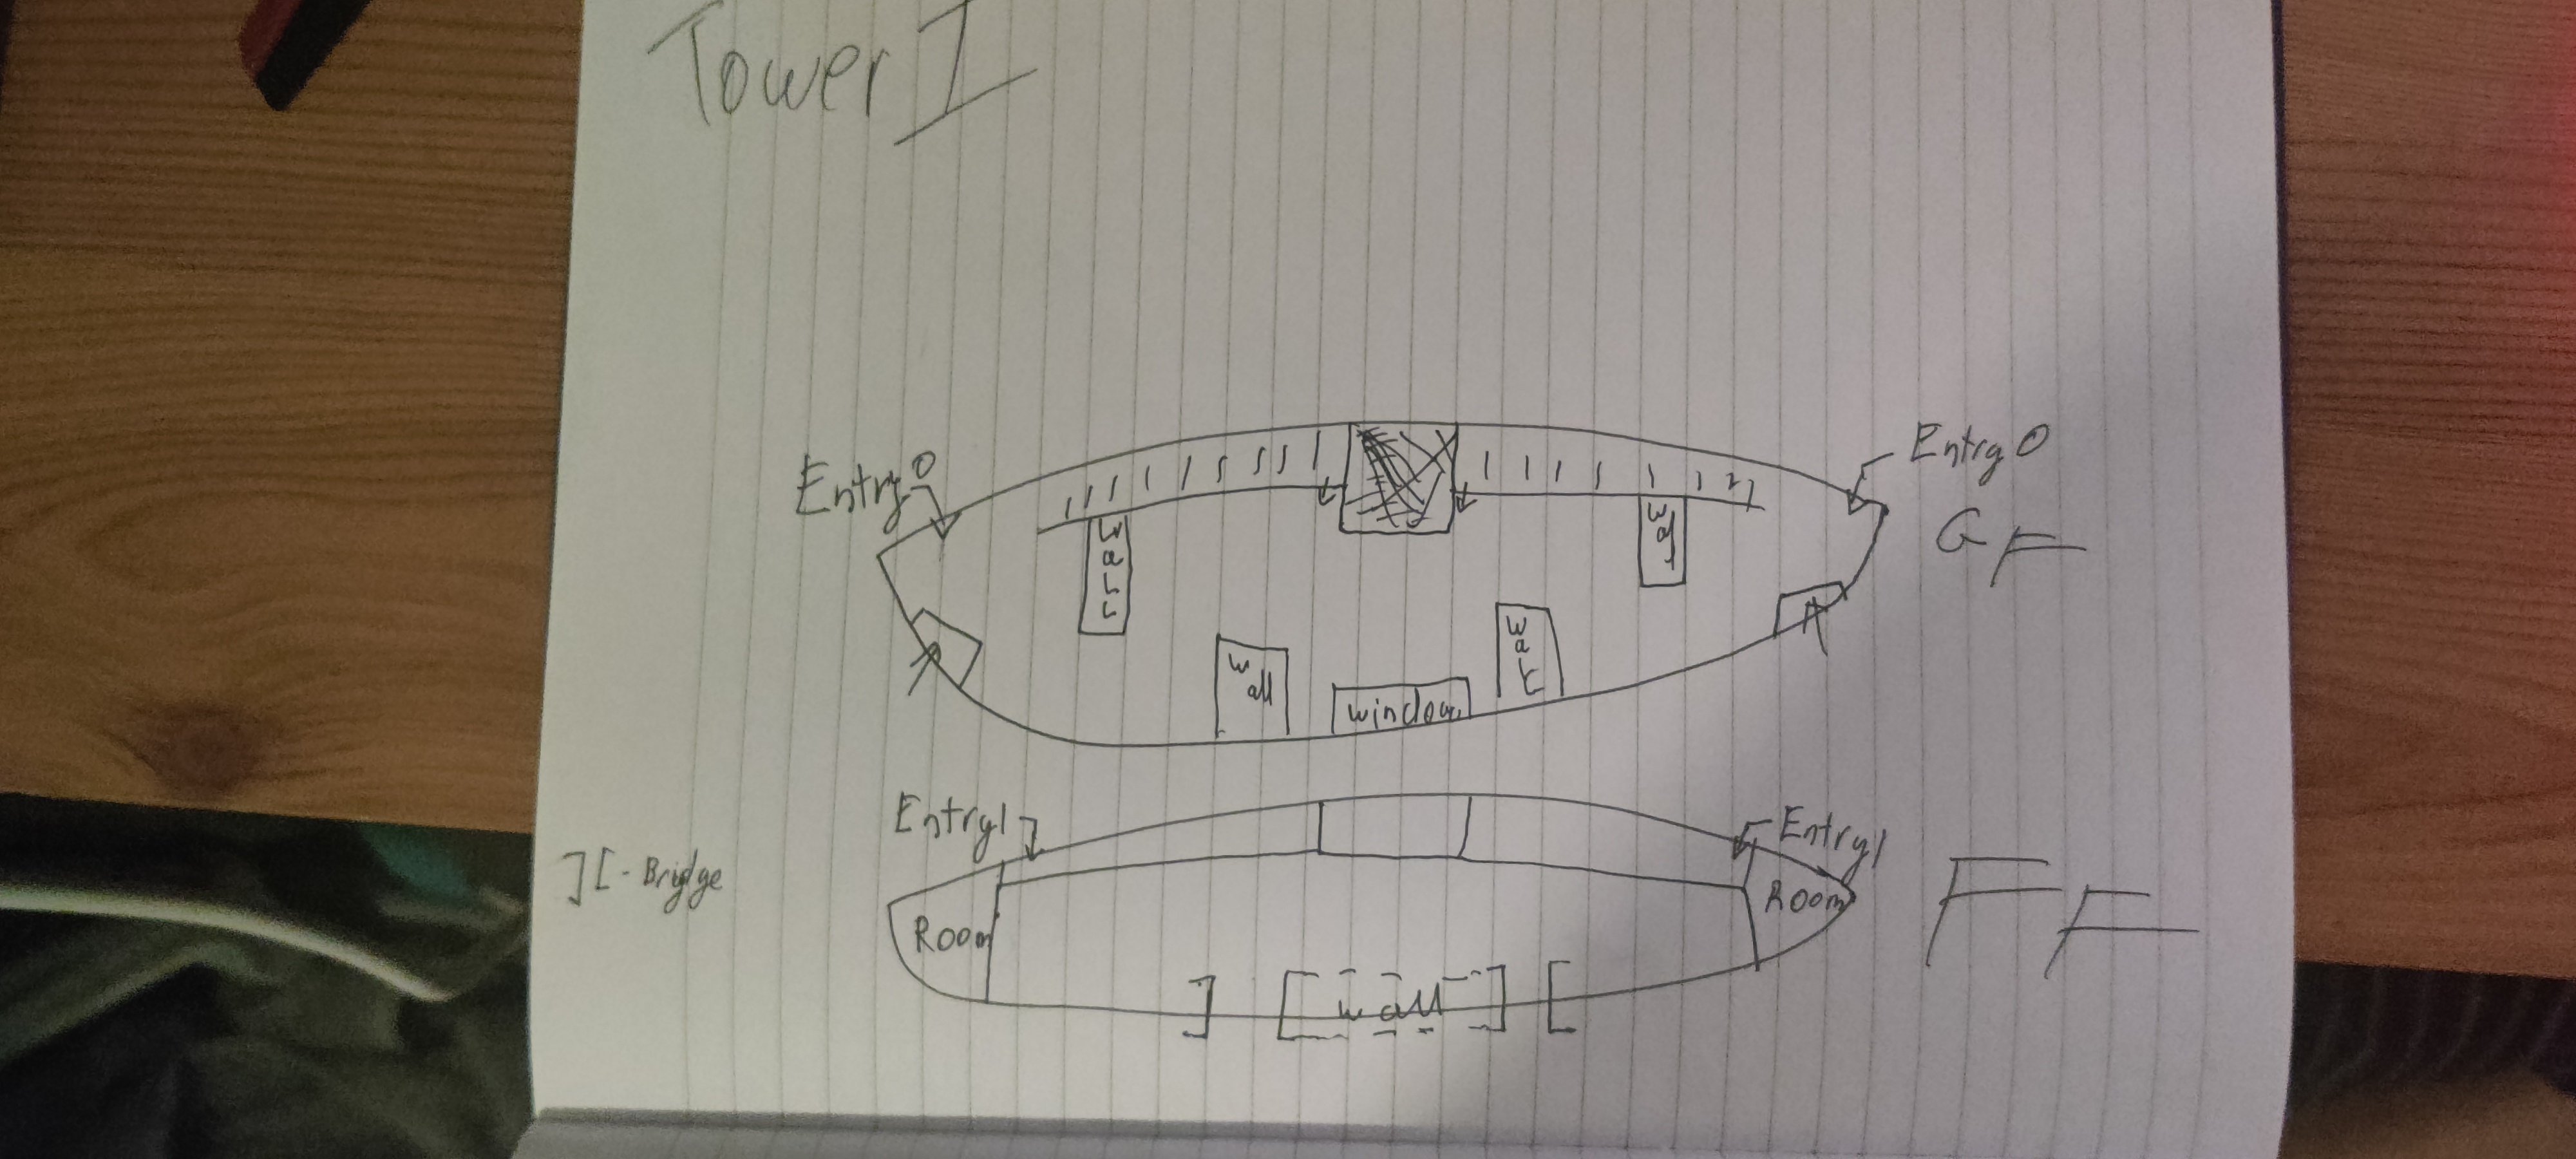 Tower I
Entry 0
Entry 0
GF
WaLL
Wall
wall
window
Entry1
Entry1
][ - Bridge
Room
Room
FF
] [wall] [